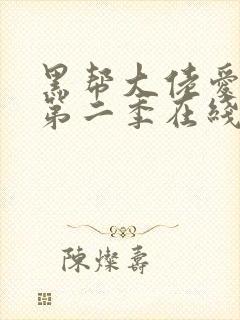 黑帮大佬爱
第二季在线
陳燦壽